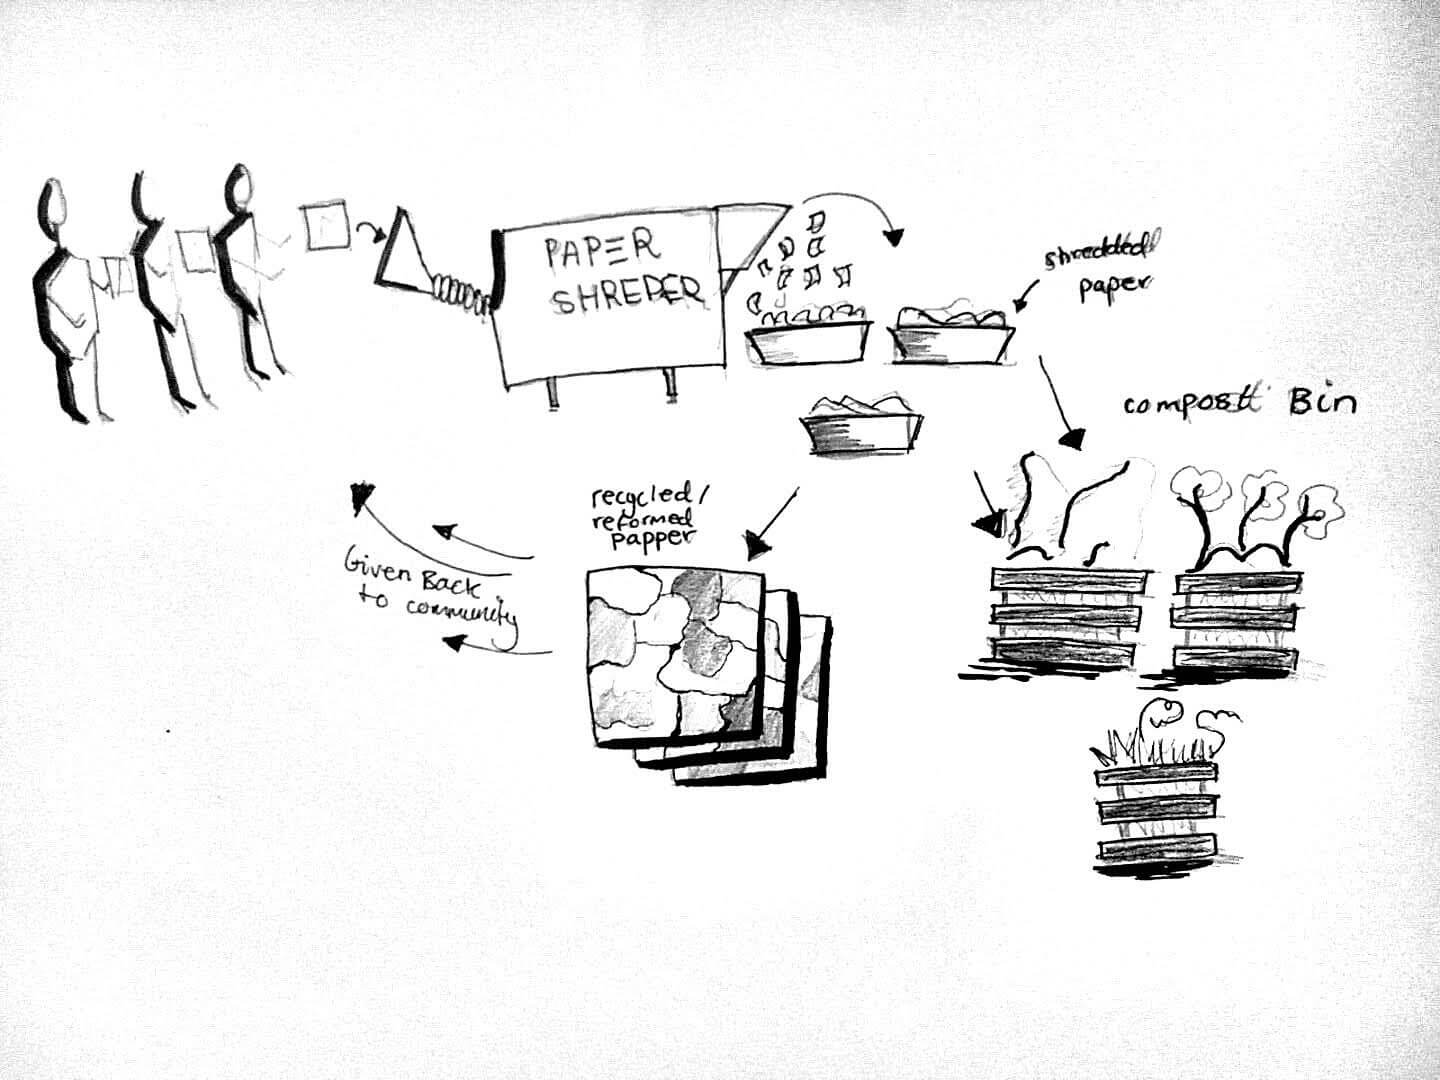 PAPER
SHREDER
shredded
paper
compostt Bin
recycled/
reformed
papper
Given Back
to community